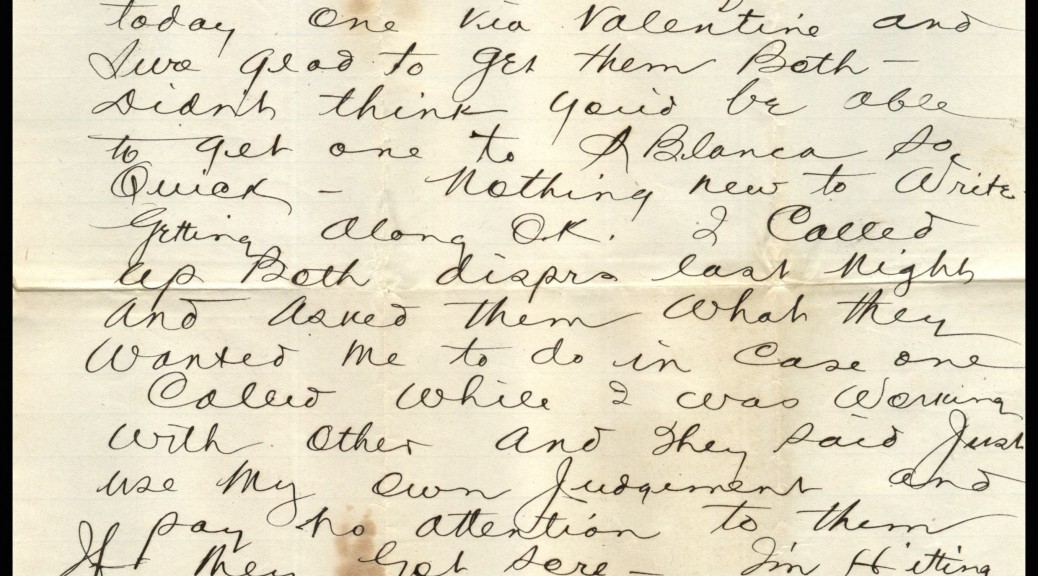 today one via Valentine and
Sure glad to get them Both –
Didn't think you'd be able
to get one to S Blanca So
Quick – Nothing new to Write
Getting Along O.K. I Called
up Both disprs last Night
And Asked them What they
Wanted Me to do in Case one
Called While I was Working
With Other And They Said Just
use My Own Judgement and
pay no attention to them
If They Got Sore – I'm Hitting